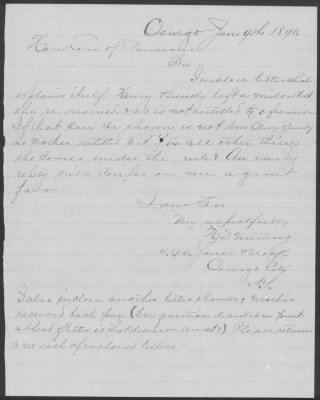 Oswego June 9th 1890
Hon Com of Pensions
Sir
I enclose letter which
explains itself. Henry Bundy left a widow but
she remarried, & so is not entitled to a pension
If that can be shown is not Mrs Olive Bundy
as Mother, entitled to it if in all other things
she comes under the rule? An early
reply will confer on me a great
favor
I am Sir
Very respectfully
N D Nutting
4, 5 & 6, Jones Block
Oswego City
N.Y.
I also inclose another letter showing mother
received back pay. (See question decided in
a head of letter is that decision correct?) Please return
to me each of enclosed letters